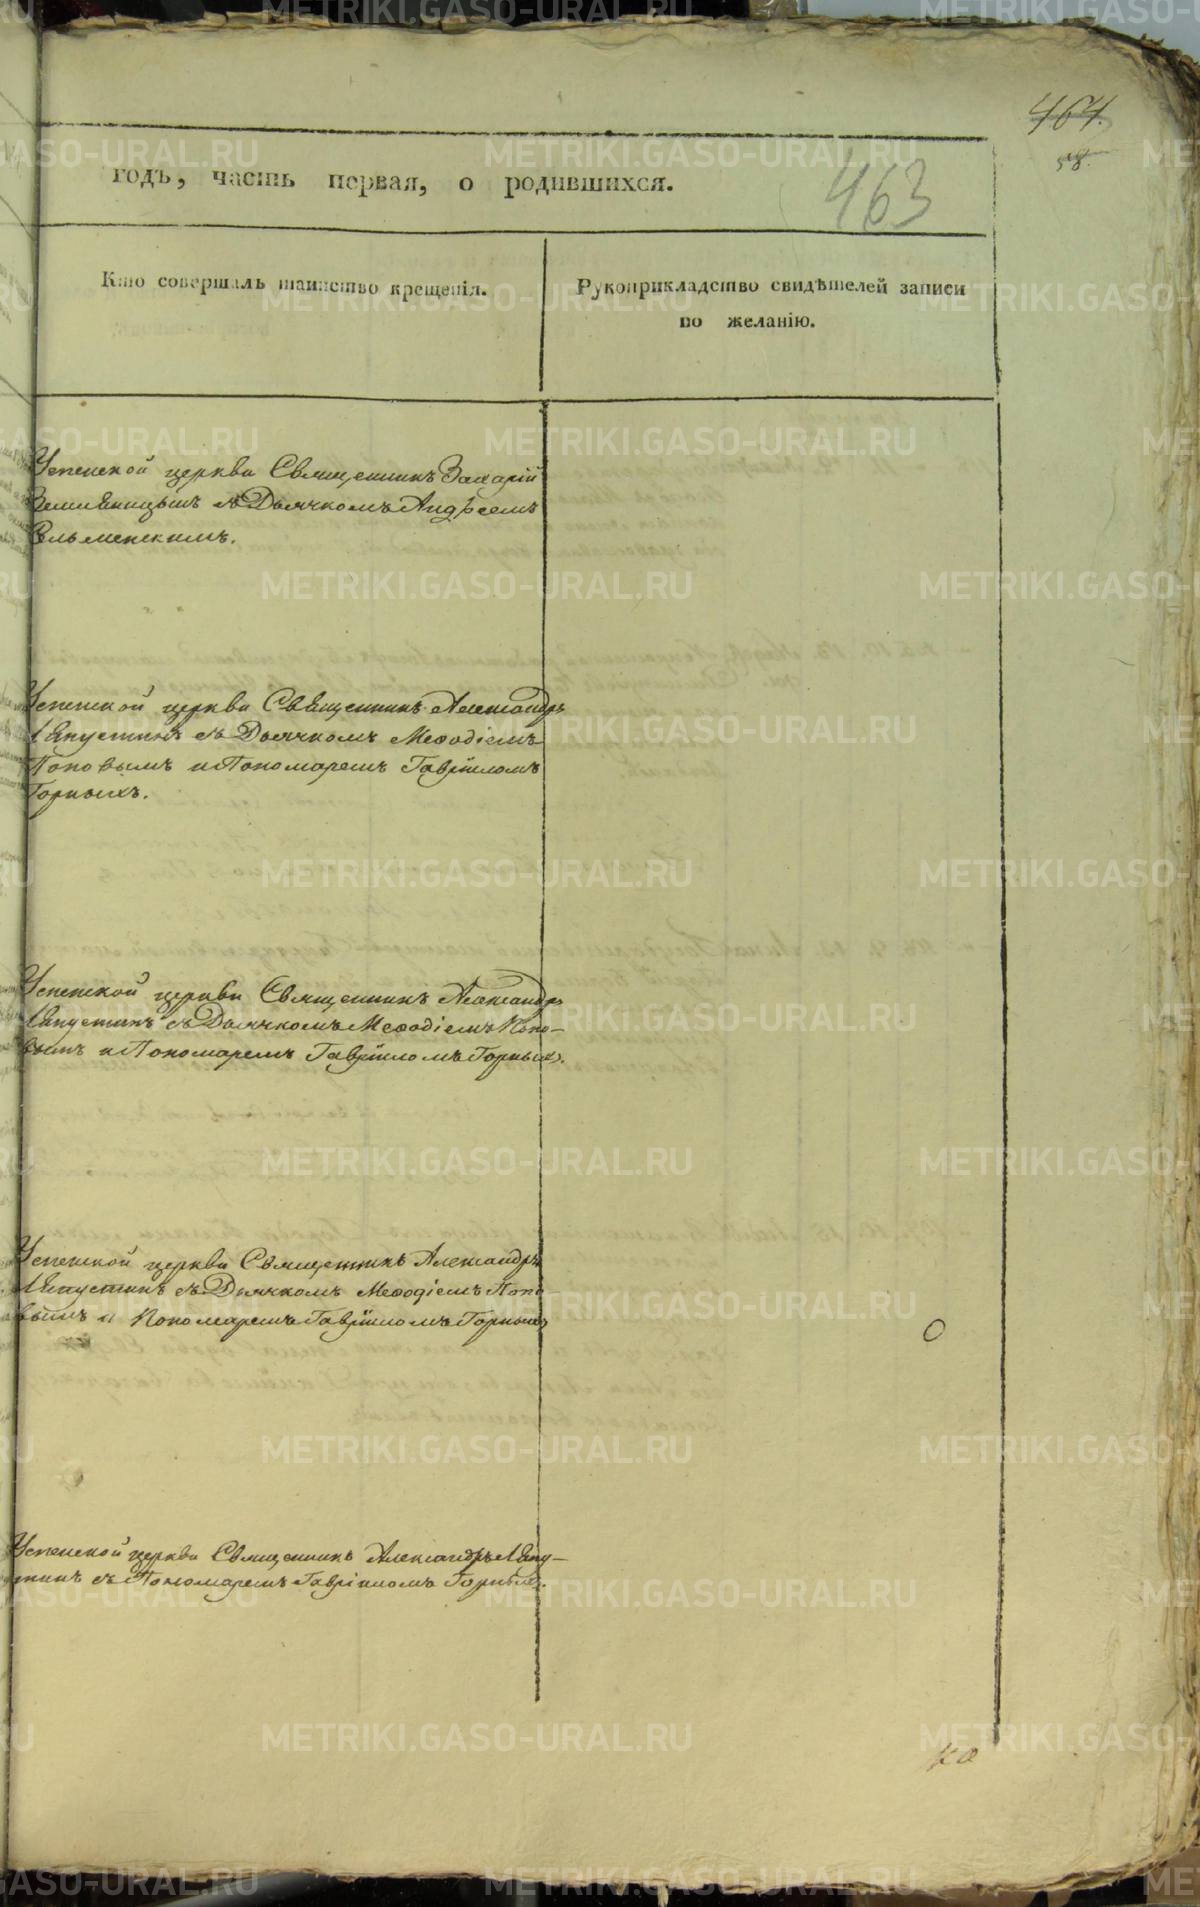 464.
58.
годъ, часть первая, о родившихся.
463
Кто совершалъ таинство крещенія.
Рукоприкладство свидѣтелей записи
по желанію.
Успенской церкви Священникъ Захарій
съ Дьячкомъ Андреемъ
Успенской церкви Священникъ Александръ
Левпустинъ съ Дьячкомъ Меѳодіемъ
Поповымъ и Пономаремъ Гавріиломъ
Горныхъ.
Успенской церкви Священникъ Александръ
Левпустинъ съ Дьячкомъ Меѳодіемъ Попо-
вымъ и Пономаремъ Гавріиломъ Горныхъ.
Успенской церкви Священникъ Александръ
Левпустинъ съ Дьячкомъ Меѳодіемъ Попо-
вымъ и Пономаремъ Гавріиломъ Горныхъ
Успенской церкви Священникъ Александръ Левпу-
стинъ съ Пономаремъ Гавріиломъ Горныхъ.
METRIKI.GASO-URAL.RU